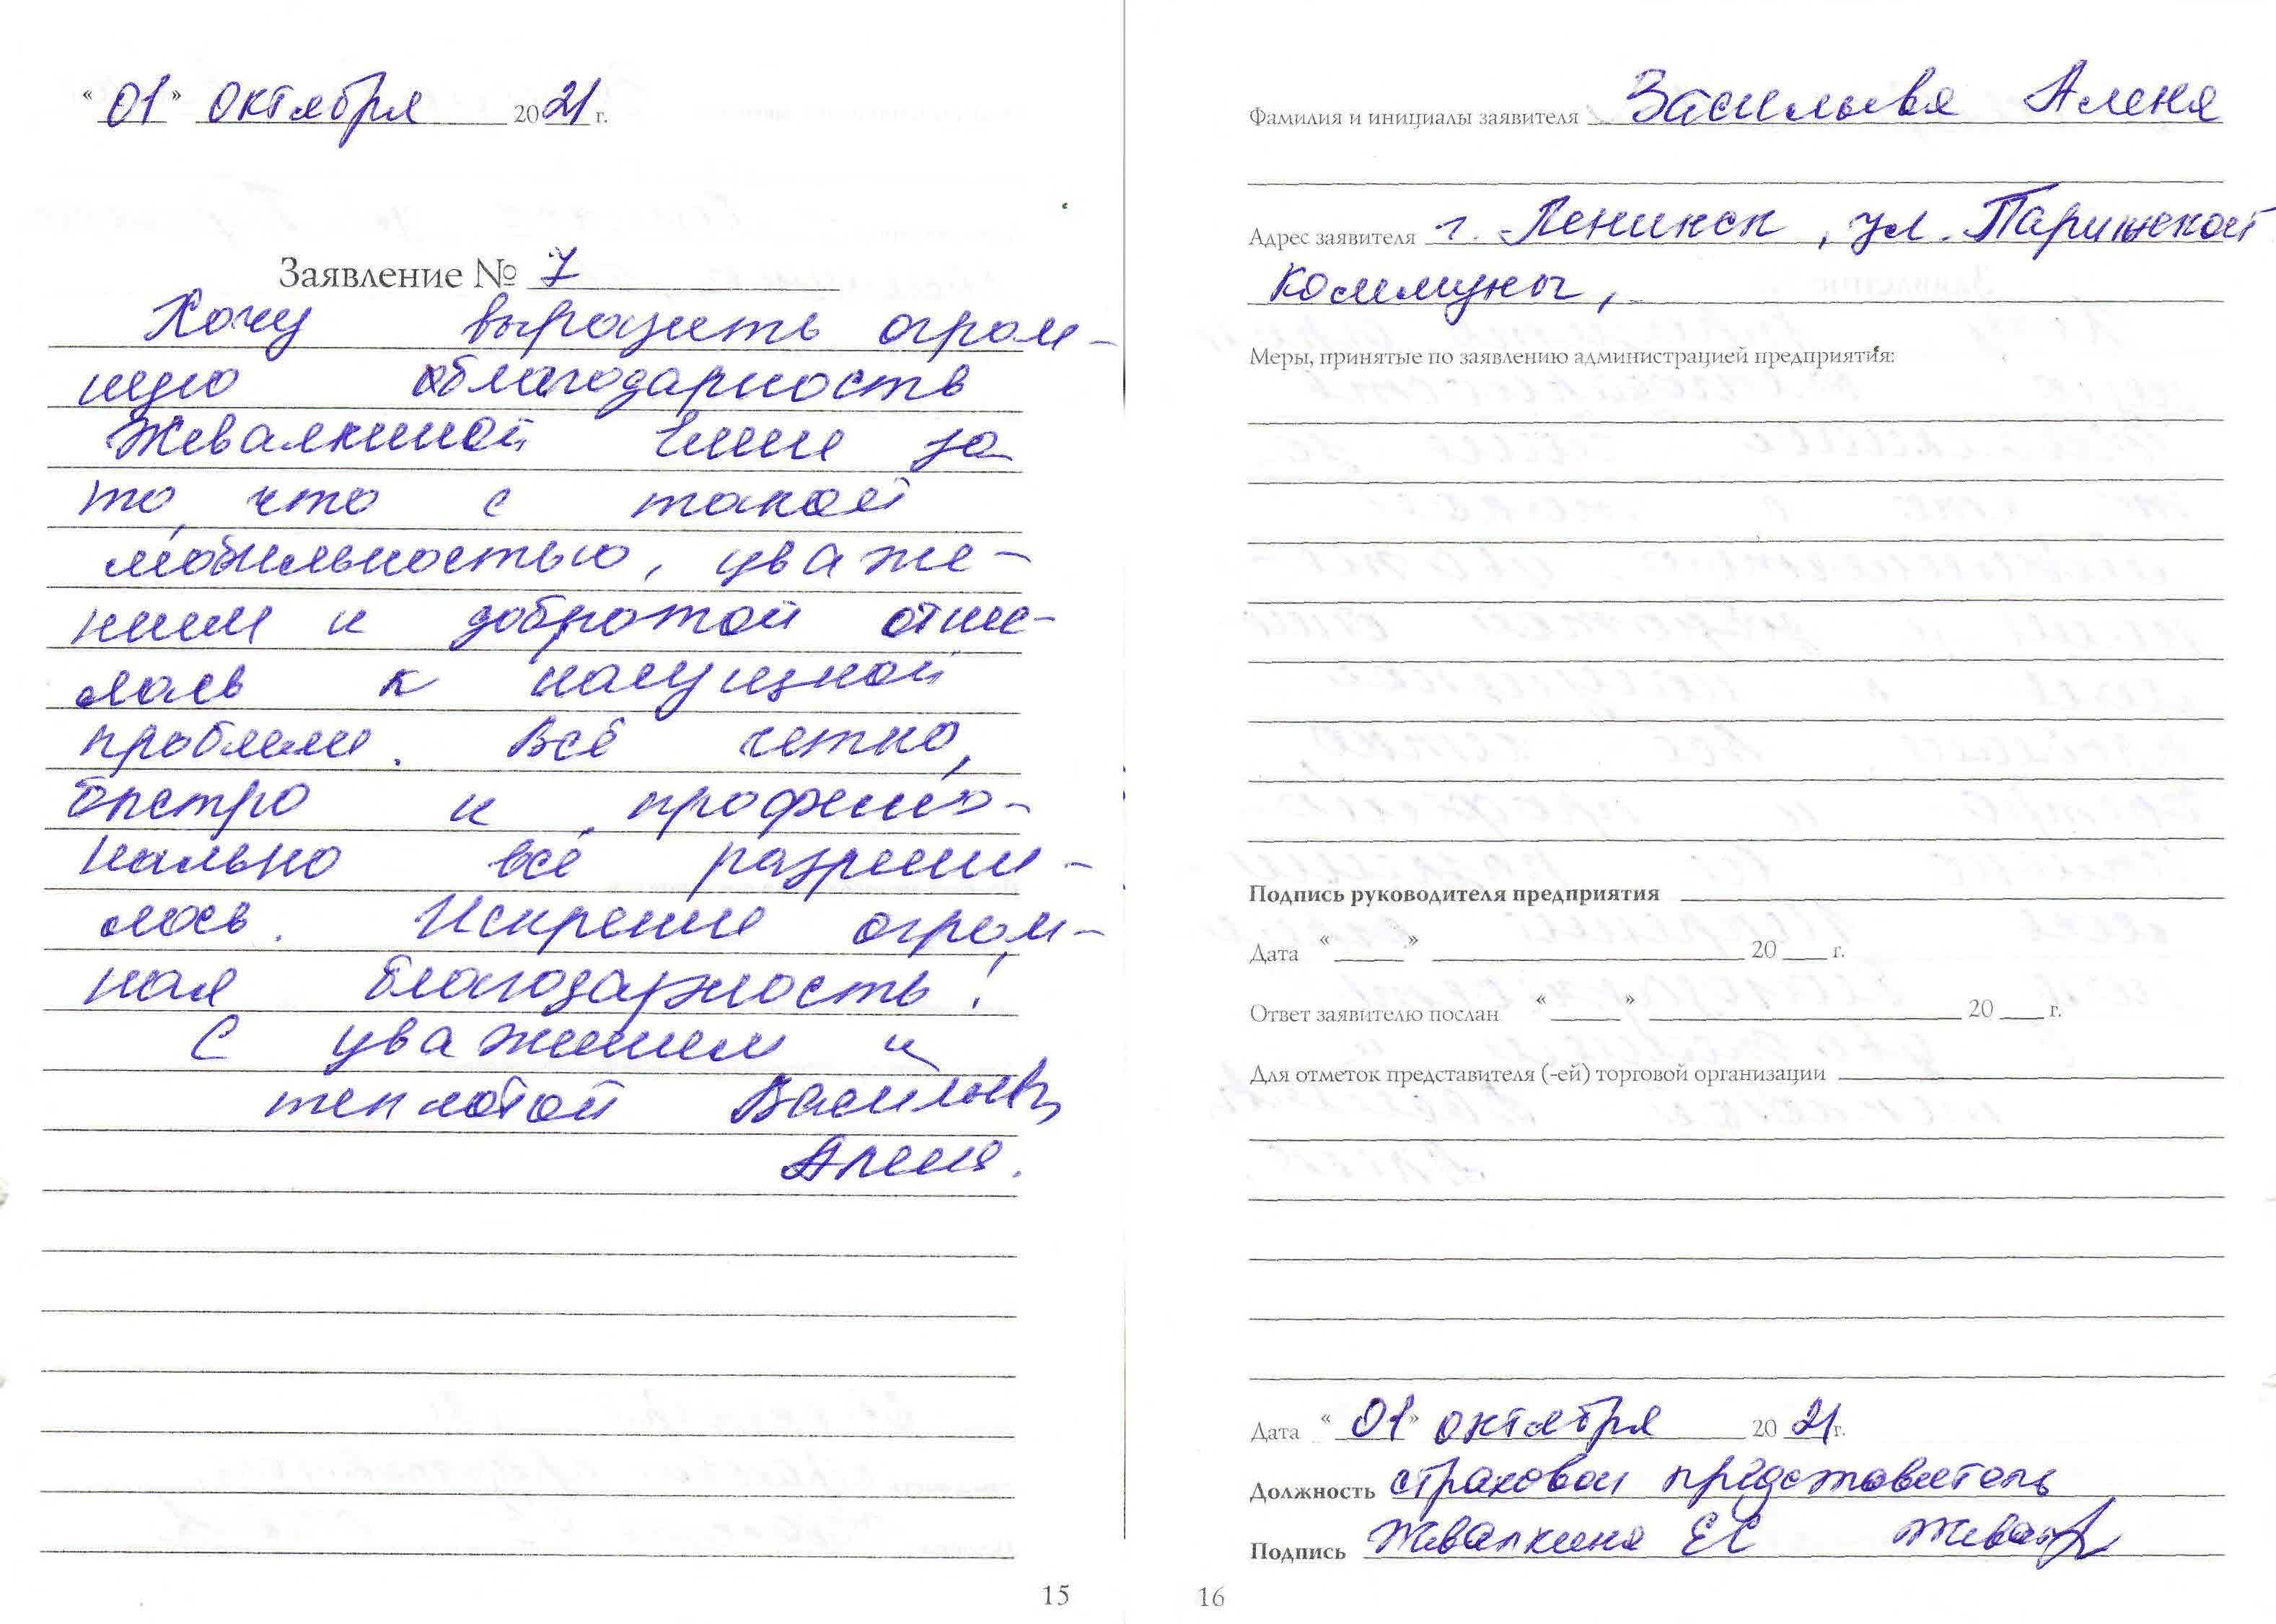 « 01 » октября 2021 г.
Заявление № 7
Хочу выразить огром-
ную благодарность
Жевалкиной Елене за
то, что с такой
мобильностью, уваже-
нием и добротой отне-
лась к насущной
проблеме. Всё четко,
быстро и профессио-
нально всё разреши-
лось. Искренне огром-
ная благодарность!
С уважением и
теплотой Васильева
Алена.
15
Фамилия и инициалы заявителя Васильева Алена
Адрес заявителя г. Ленинск, ул. Парижской
Коммуны,
Меры, принятые по заявлению администрацией предприятия:
Подпись руководителя предприятия
Дата « » 20 г.
Ответ заявителю послан « » 20 г.
Для отметок представителя (-ей) торговой организации
Дата « 01 » октября 2021 г.
Должность страховой представитель
Подпись Жевалкина ЕС
16